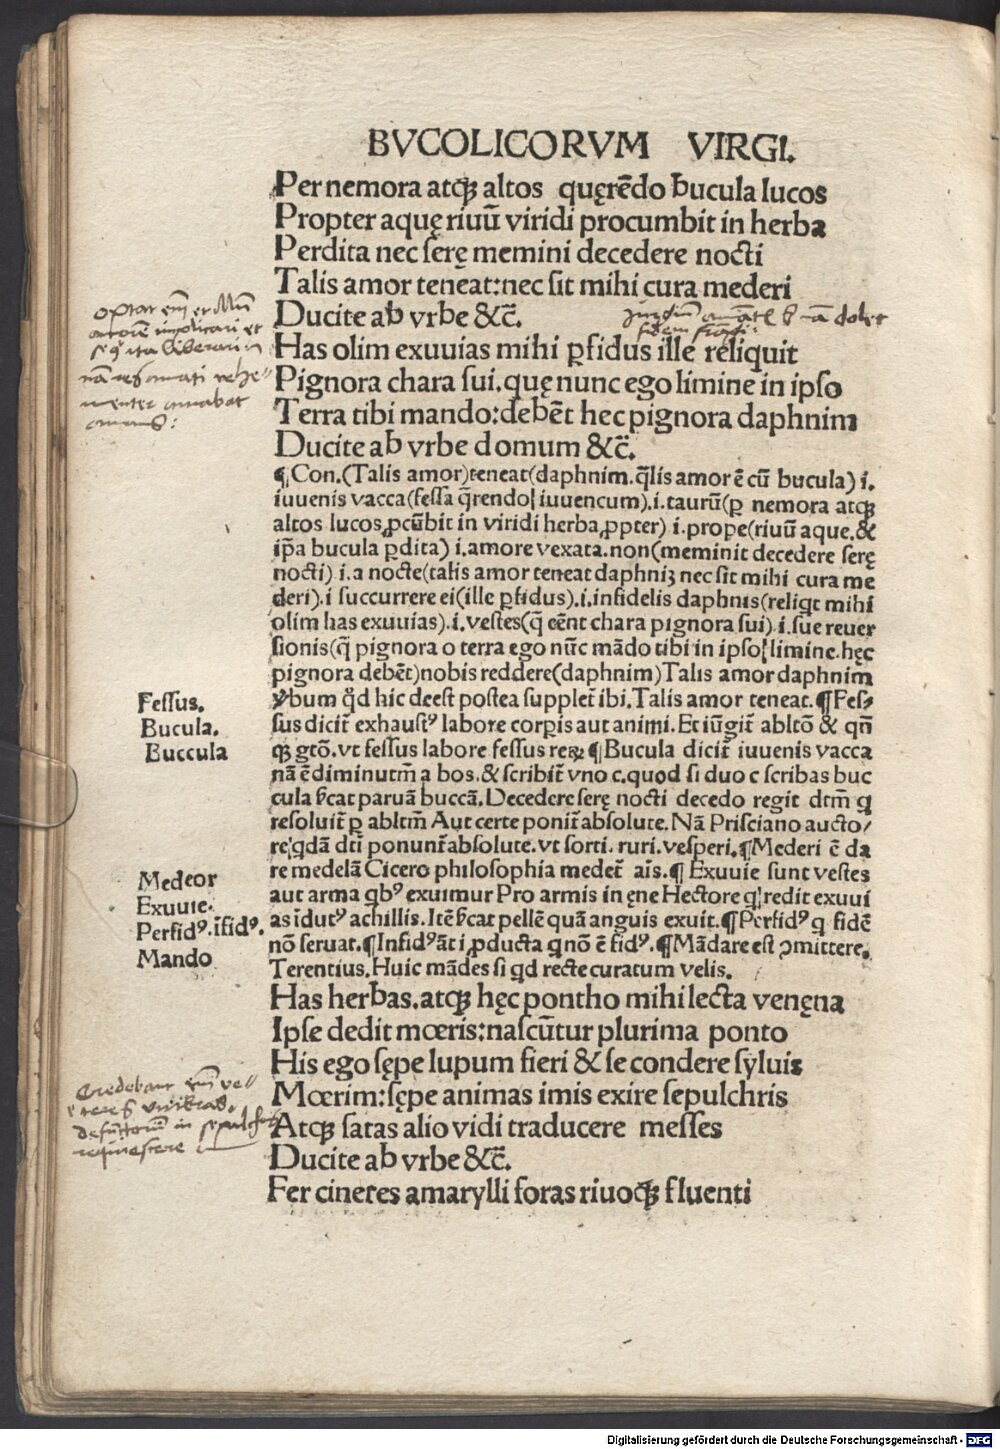 BVCOLICORVM VIRGI.
Per nemora atqꝫ altos quęrēdo bucula lucos
Propter aquę riuū viridi procumbit in herba
Perdita nec serę memini decedere nocti
Talis amor teneat:nec sit mihi cura mederi
Ducite ab vrbe &c̄.
Has olim exuuias mihi ꝑfidus ille reliquit
Pignora chara sui.quę nunc ego limine in ipso
Terra tibi mando:debēt hec pignora daphnim
Ducite ab vrbe domum &c̄.
¶Con.(Talis amor)teneat(daphnim.q̄lis amor ē cū bucula) i.
iuuenis vacca(fessa q̄rendo iuuencum).i.taurū(ꝑ nemora atqꝫ
altos lucos ꝓcūbit in viridi herba ꝓpter) i.prope(riuū aque.&
ip̄a bucula ꝑdita) i.amore vexata.non(meminit decedere serę
nocti) i.a nocte(talis amor teneat daphniꝫ nec sit mihi cura me
deri).i succurrere ei(ille ꝑfidus).i.infidelis daphnis(reliqt mihi
olim has exuuias).i.vestes(q̄ eēnt chara pignora sui).i.sue reuer
sionis(q̄ pignora o terra ego nūc mādo tibi in ipso limine.hęc
pignora debēt)nobis reddere(daphnim)Talis amor daphnim
v̄bum qd̄ hic deest postea supplet̄ ibi.Talis amor teneat.¶Fes⸗
sus dicit̄ exhaustꝰ labore corꝑis aut animi.Et iūgit̄ abltō & qn̄
qꝫ gtō.vt fessus labore fessus reꝝ ¶Bucula dicit̄ iuuenis vacca
nā ē diminutm̄ a bos.& scribit̄ vno c.quod si duo c scribas buc
cula s̄cat paruā buccā.Decedere serę nocti decedo regit dtm̄ q
resoluit̄ ꝑ abltm̄ Aut certe ponit̄ absolute.Nā Prisciano aucto/
re qdā dti ponunt̄ absolute.vt sorti.ruri.vesperi.¶Mederi ē da
re medelā Cicero philosophia medet̄ aīs.¶Exuuie sunt vestes
aut arma qbꝰ exuimur Pro armis in ęne Hectore q redit exuui
as īdutꝰ achillis.Itē s̄cat pellē quā anguis exuit.¶Perfidꝰ q fidē
nō seruat.¶Infidꝰ āt i ꝓducta q nō ē fidꝰ.¶Mādare est ꝯmittere.
Terentius.Huic mādes si qd recte curatum velis.
Fessus.
Bucula.
Buccula
Medeor
Exuuie.
Perfidꝰ.īfidꝰ.
Mando
Has herbas.atqꝫ hęc pontho mihi lecta venęna
Ipse dedit mœris:nascūtur plurima ponto
His ego sępe lupum fieri & se condere syluis
Mœrim:sępe animas imis exire sepulchris
Atqꝫ satas alio vidi traducere messes
Ducite ab vrbe &c̄.
Fer cineres amarylli foras riuoqꝫ fluenti
Digitalisierung gefördert durch die Deutsche Forschungsgemeinschaft - DFG